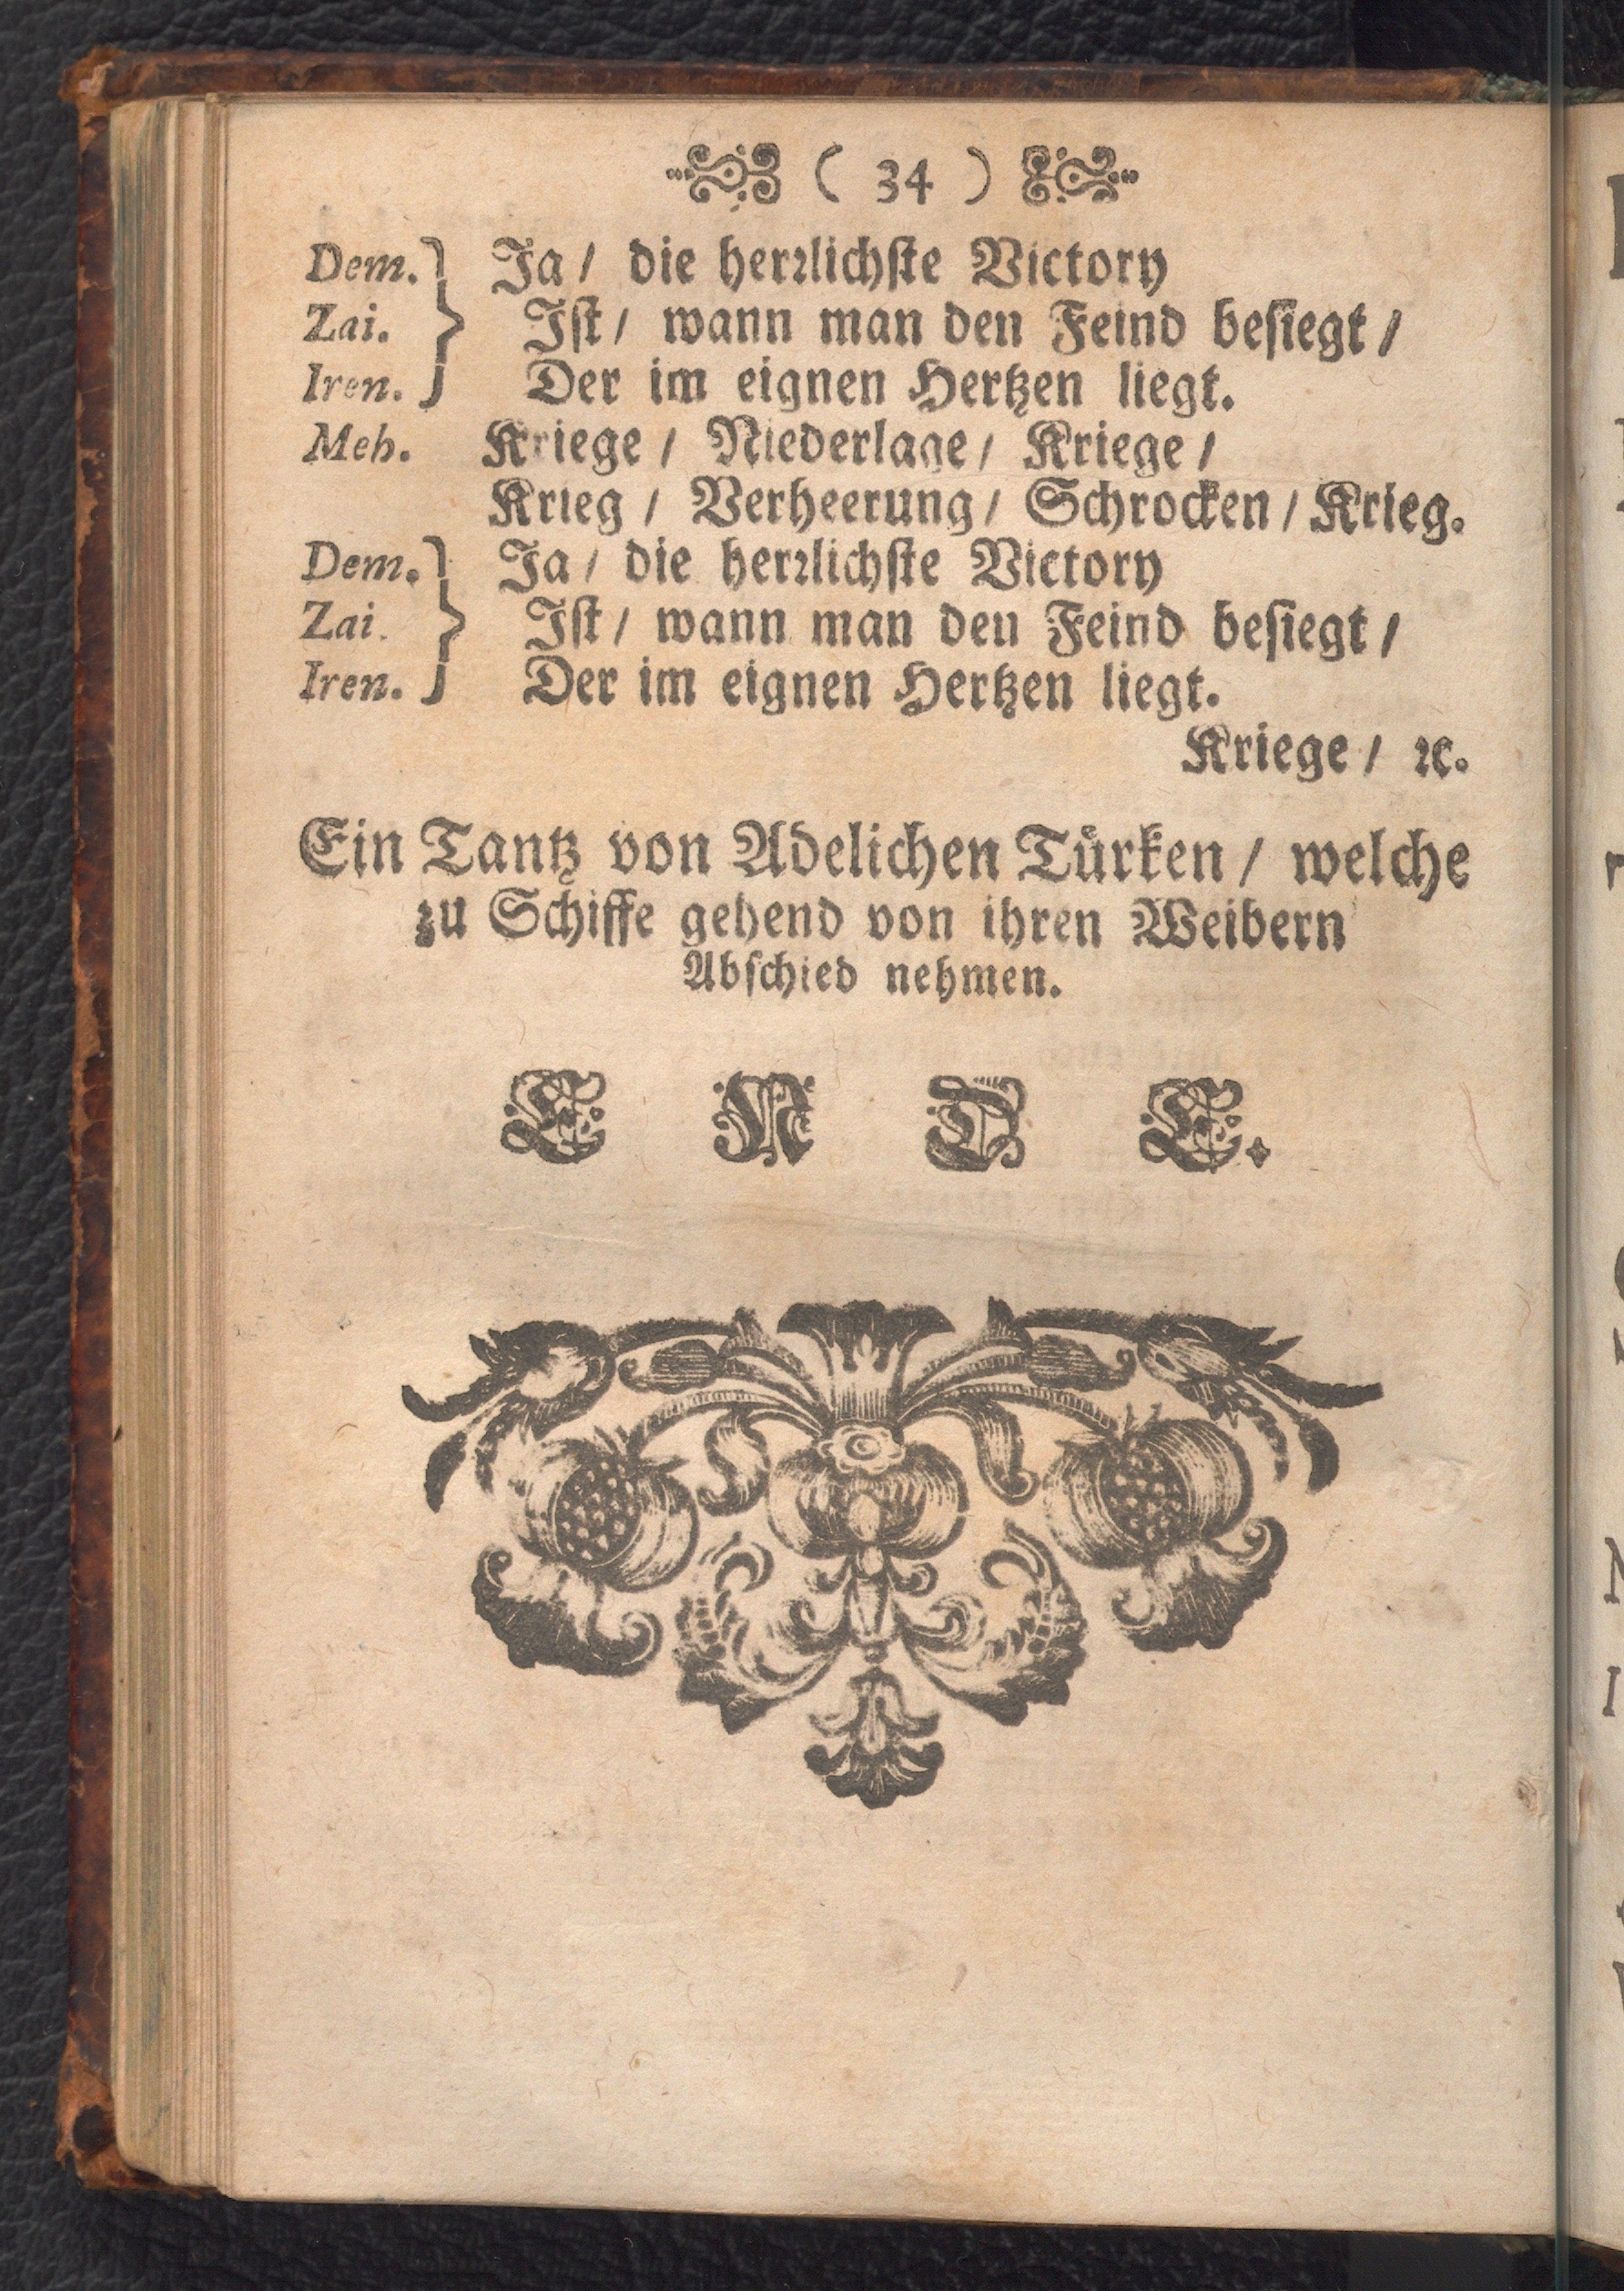 ( 34 )
Dem. } Ja / die herꝛlichſte Victory
Zai. } Iſt / wann man den Feind beſiegt /
Iren. } Der im eignen Hertzen liegt.
Meh. Kriege / Niederlage / Kriege /
Krieg / Verheerung / Schrocken / Krieg.
Dem. } Ja / die herꝛlichſte Victory
Zai. } Iſt / wann man den Feind beſiegt /
Iren. } Der im eignen Hertzen liegt.
Kriege / ꝛc.
Ein Tantz von Adelichen Tuͤrken / welche
zu Schiffe gehend von ihren Weibern
Abſchied nehmen.
E N D E.